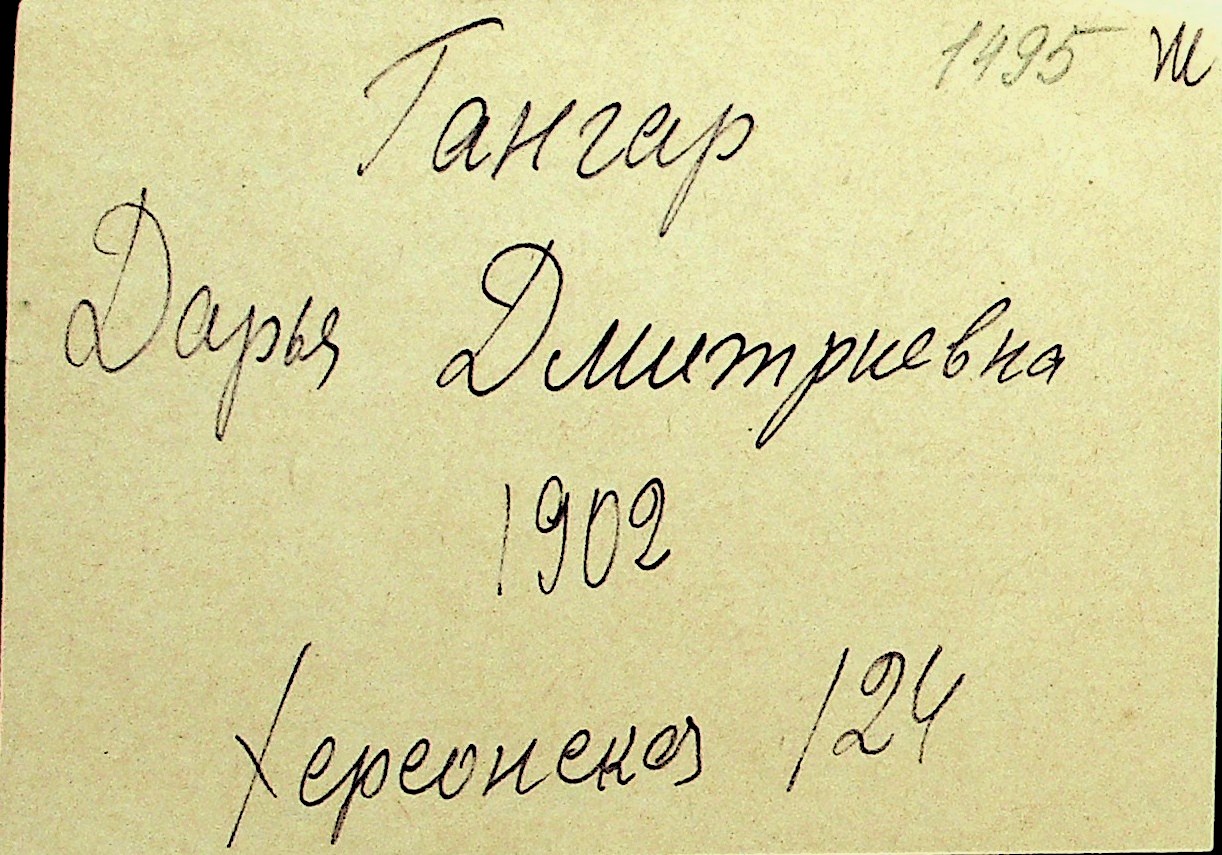 1495 Ж
Гангар
Дарья Дмитриевна
1902
Херсонская 124